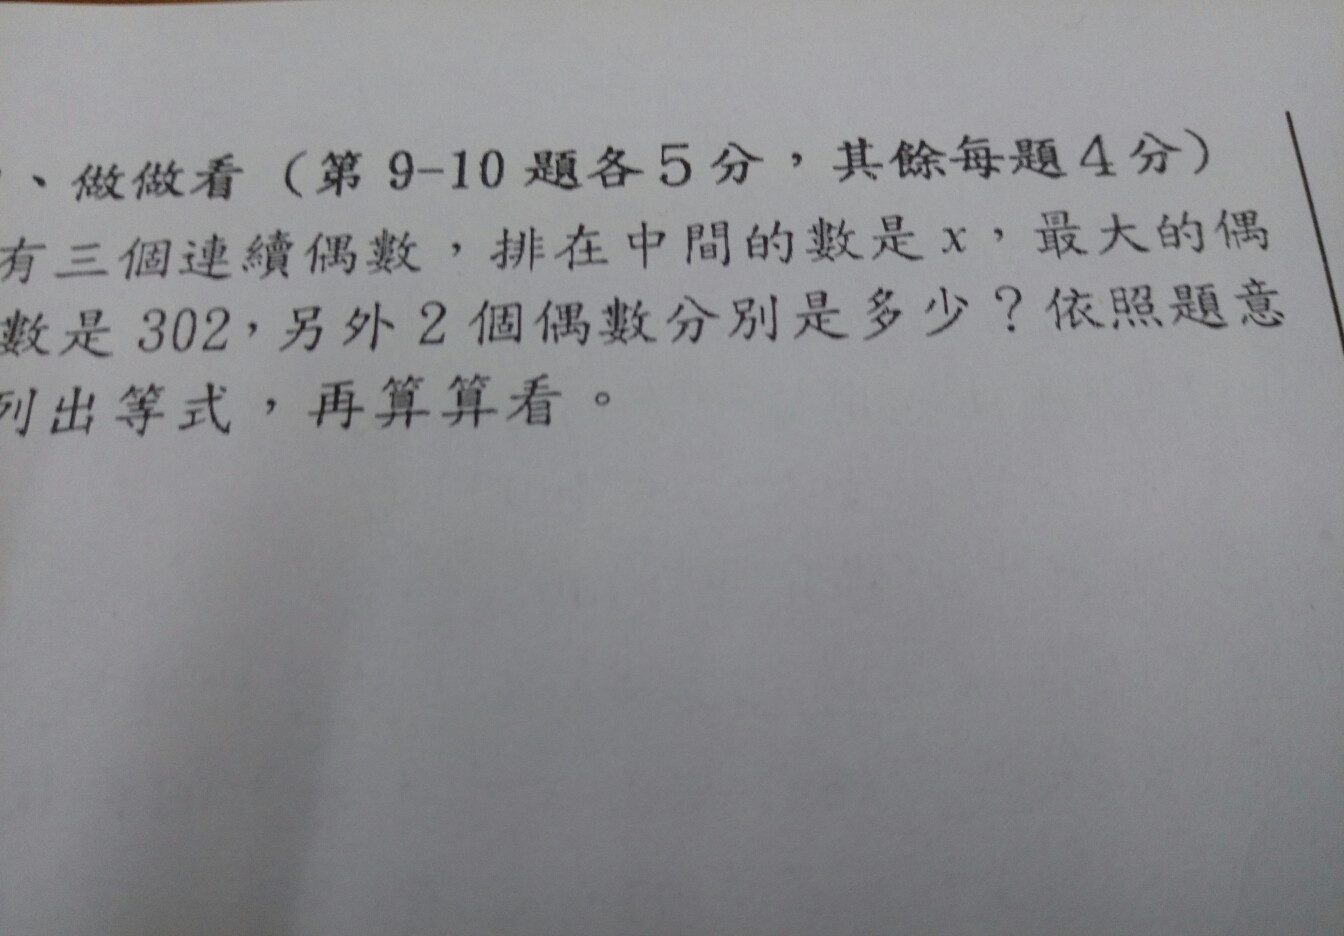 、做做看（第 9-10 題各5分，其餘每題4分）
有三個連續偶數，排在中間的數是 x，最大的偶
數是 302，另外 2 個偶數分別是多少？依照題意
列出等式，再算算看。